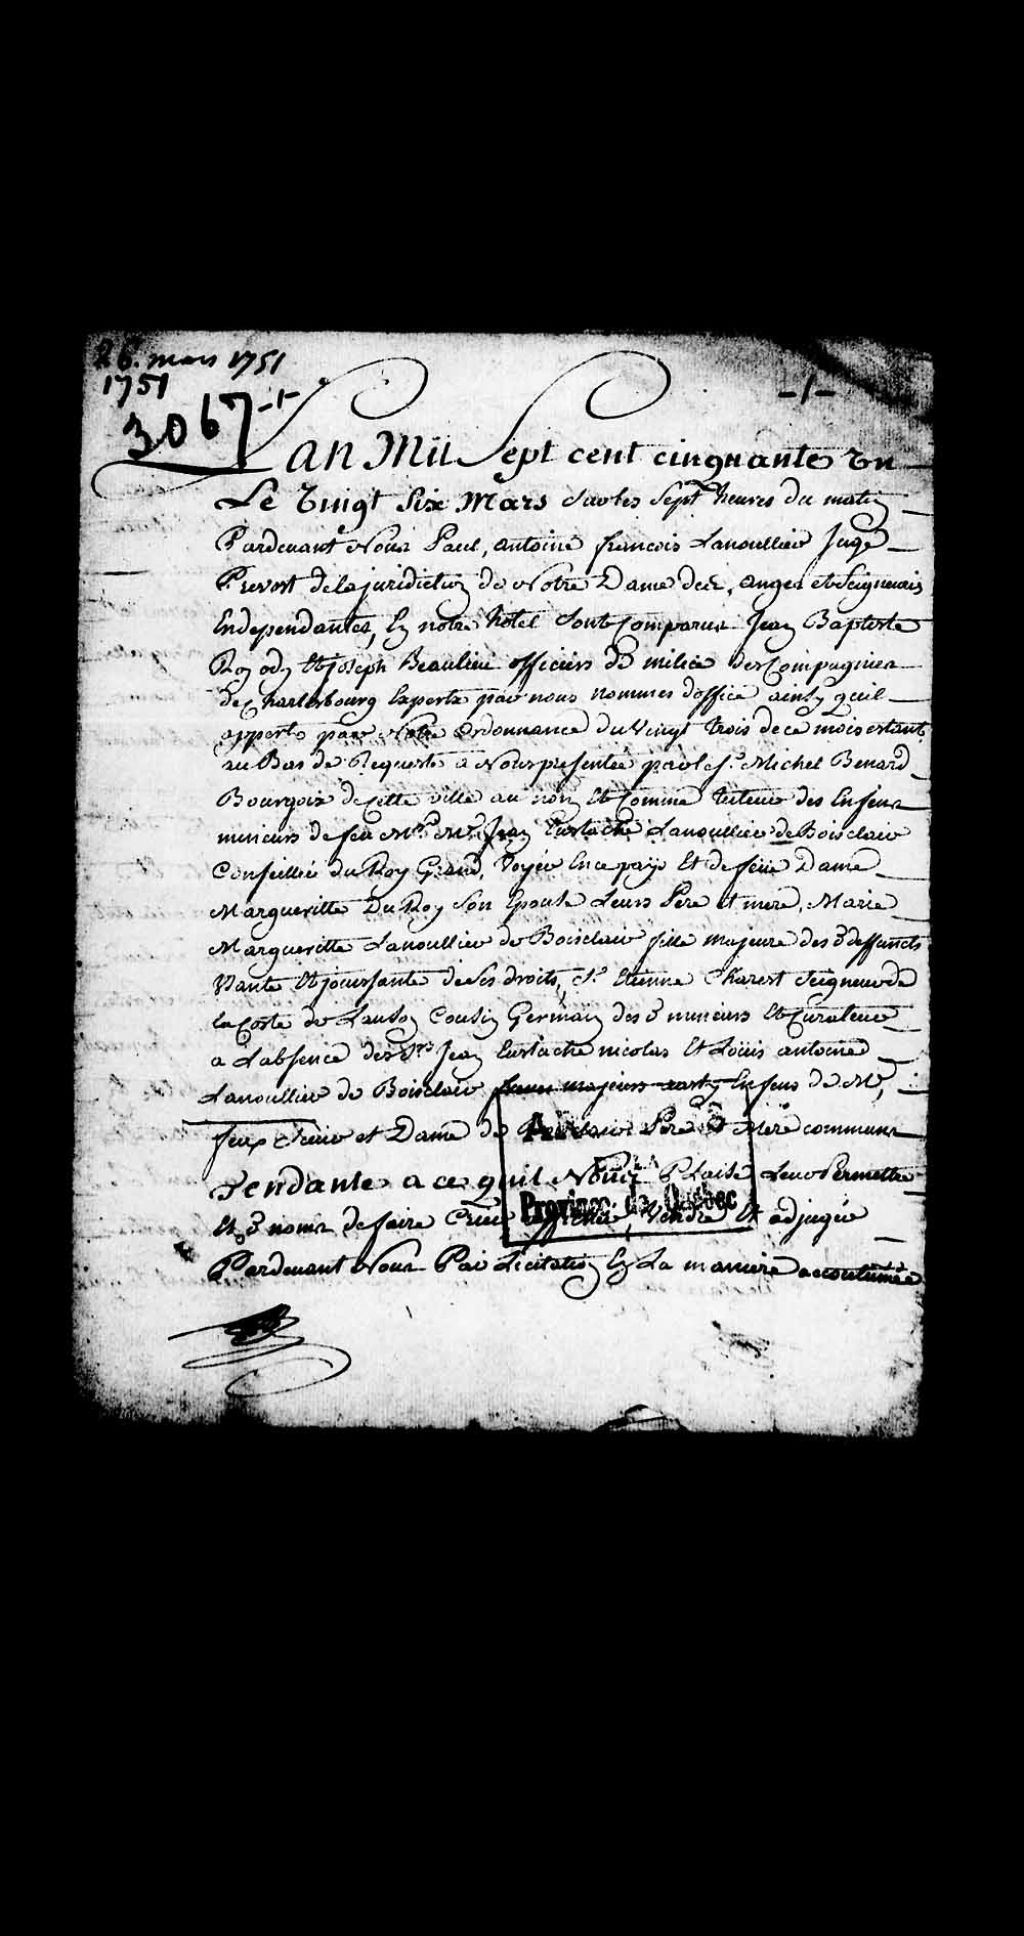 26. mars 1751
1751
3067 -1-
-1-
Lan Mil Sept cent cinquante Un
Le Vingt Six Mars Sur les Sept heures du matin
Pardevant Nous Paul, antoine francois Lanoullier Juge
Prevost de la juridiction de Notre Dame des, anges et Seigneuries
Endependantes, En notre hotel Sont Comparus Jean Baptiste
Roy ody Et joseph Beaulieu officiers de milice des Compagnies
de Charlesbourg Experts par nous nommes d'office ainsy quil
apperts par Notre ordonnance du Vingt trois de ce mois estant
au Bas de Requeste a Nous presentée par le Sr. Michel Benard
Bourgois de Cette ville au nom Et Comme tuteur des Enfens
mineurs de feu Jean Eustache Lanoullier de Boisclair
Conseillié du Roy Grand, Voyer En ce pays Et de feüe Dame
Margueritte Du Roy Son Epouse Leurs Pere et mere, Marie
Margueritte Lanoullier de Boisclair fille majeure des d deffuncts
Usante Et jouissante de Ses droits, Sr. Etienne Charest Seigneur de
la Coste de Lauson Cousin Germain des d mineurs Et Curateur
a Labsence des Srs Jean Eustache nicolas Et Loüis antoine
Lanoullier de Boisclair freres majeurs Enfens de Mr,
feux Sieur et Dame de Boisclair Pere & Mere communs
Tendante a ce quil Nous Plaise Leur Permettre
Es d noms de faire Crier Vendre Et adjugée
Pardevant Nous Par Licitation En La maniere accoutumée
Province de Québec